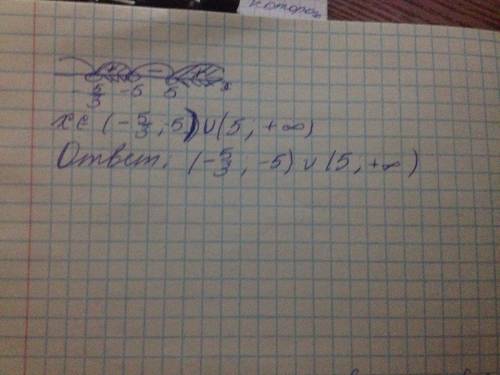 котором
+ - +
-5/3 -5 5 x
x∈(-5/3, 5)∪(5, +∞)
Ответ. (-5/3, -5)∪(5, +∞)